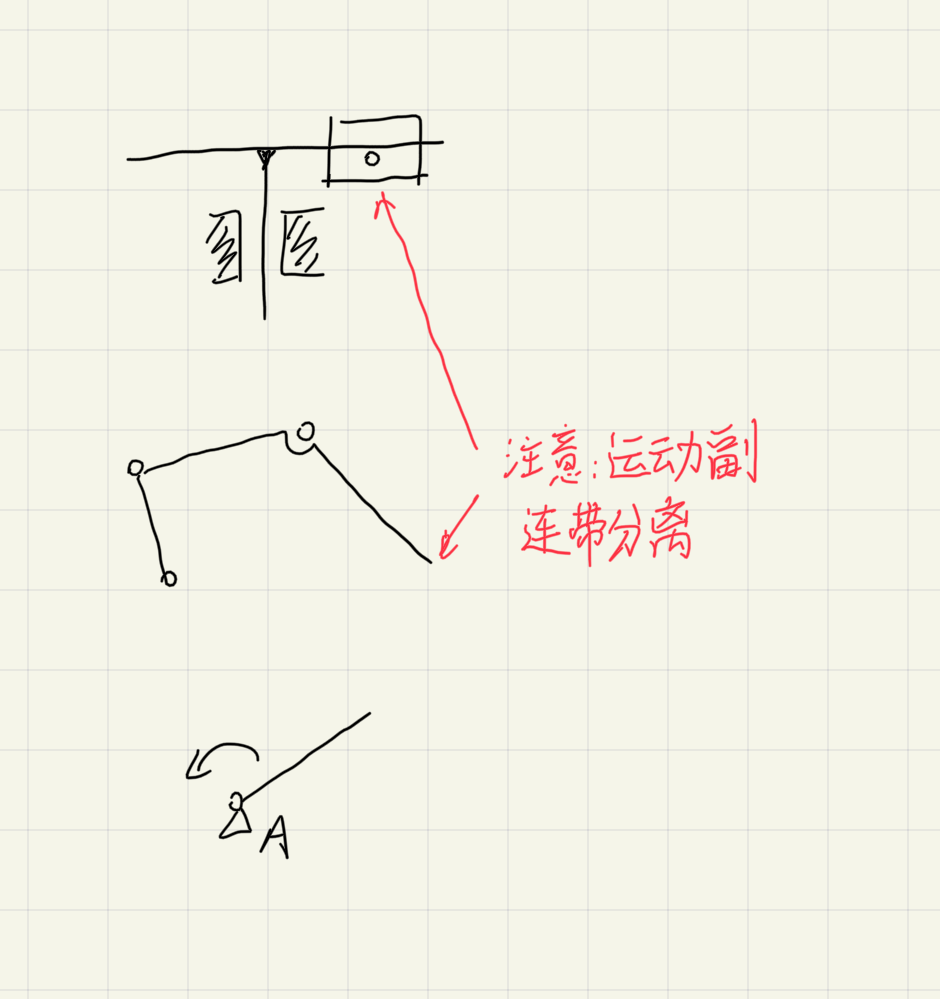 注意:运动副
连带分离
A